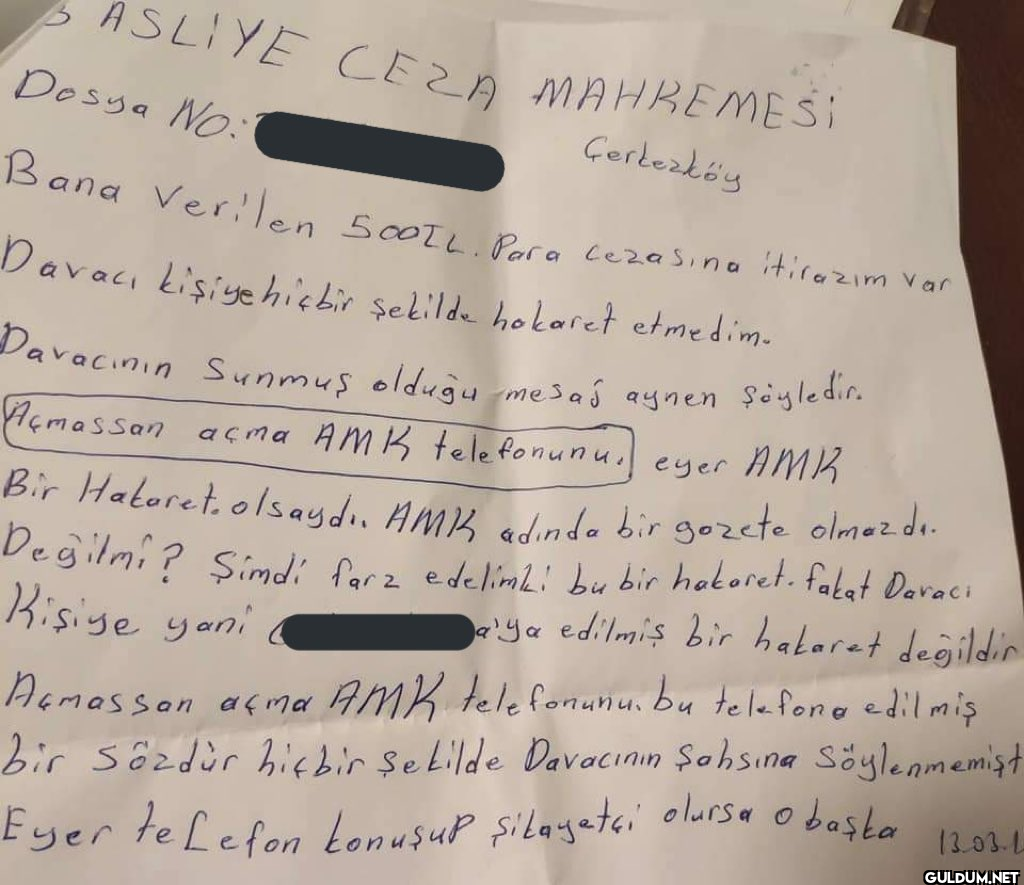 3 ASLİYE CEZA MAHKEMESİ
Dosya NO:
Çerkezköy
Bana Verilen 500TL. Para cezasına itirazım var
Davacı kişiye hiçbir şekilde hakaret etmedim.
Davacının Sunmuş olduğu mesaj aynen şöyledir.
Açmassan açma AMK telefonunu. eyer AMK
Bir Hakaret. olsaydı. AMK adında bir gazete olmazdı.
Değilmi? Şimdi farz edelimki bu bir hakaret. fakat Davacı
Kişiye yani a'ya edilmiş bir hakaret değildir
Açmassan açma AMK telefonunu. bu telefona edilmiş
bir sözdür hiçbir şekilde Davacının Şahsına Söylenmemişt
Eyer telefon konuşup şikayetçi olursa o başka
13.03.1
GULDUM.NET